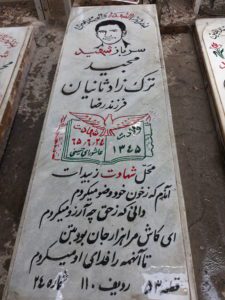 سرباز شهید
مجید
ترک زاد ثانیان
فرزند رضا
ولادت
۱۳۴۵
شهادت
۶۵/۶/۲۴
عاشورای حسینی
محل شهادت زبیدات
آندم که ز خون خود وضو میکردم
دانی که ز حق چه آرزو میکردم
ای کاش مرا هزار جان بود بتن
تا آنهمه را فدای او میکردم
قطعه ۵۳ ردیف ۱۱۰ شماره ۲۴